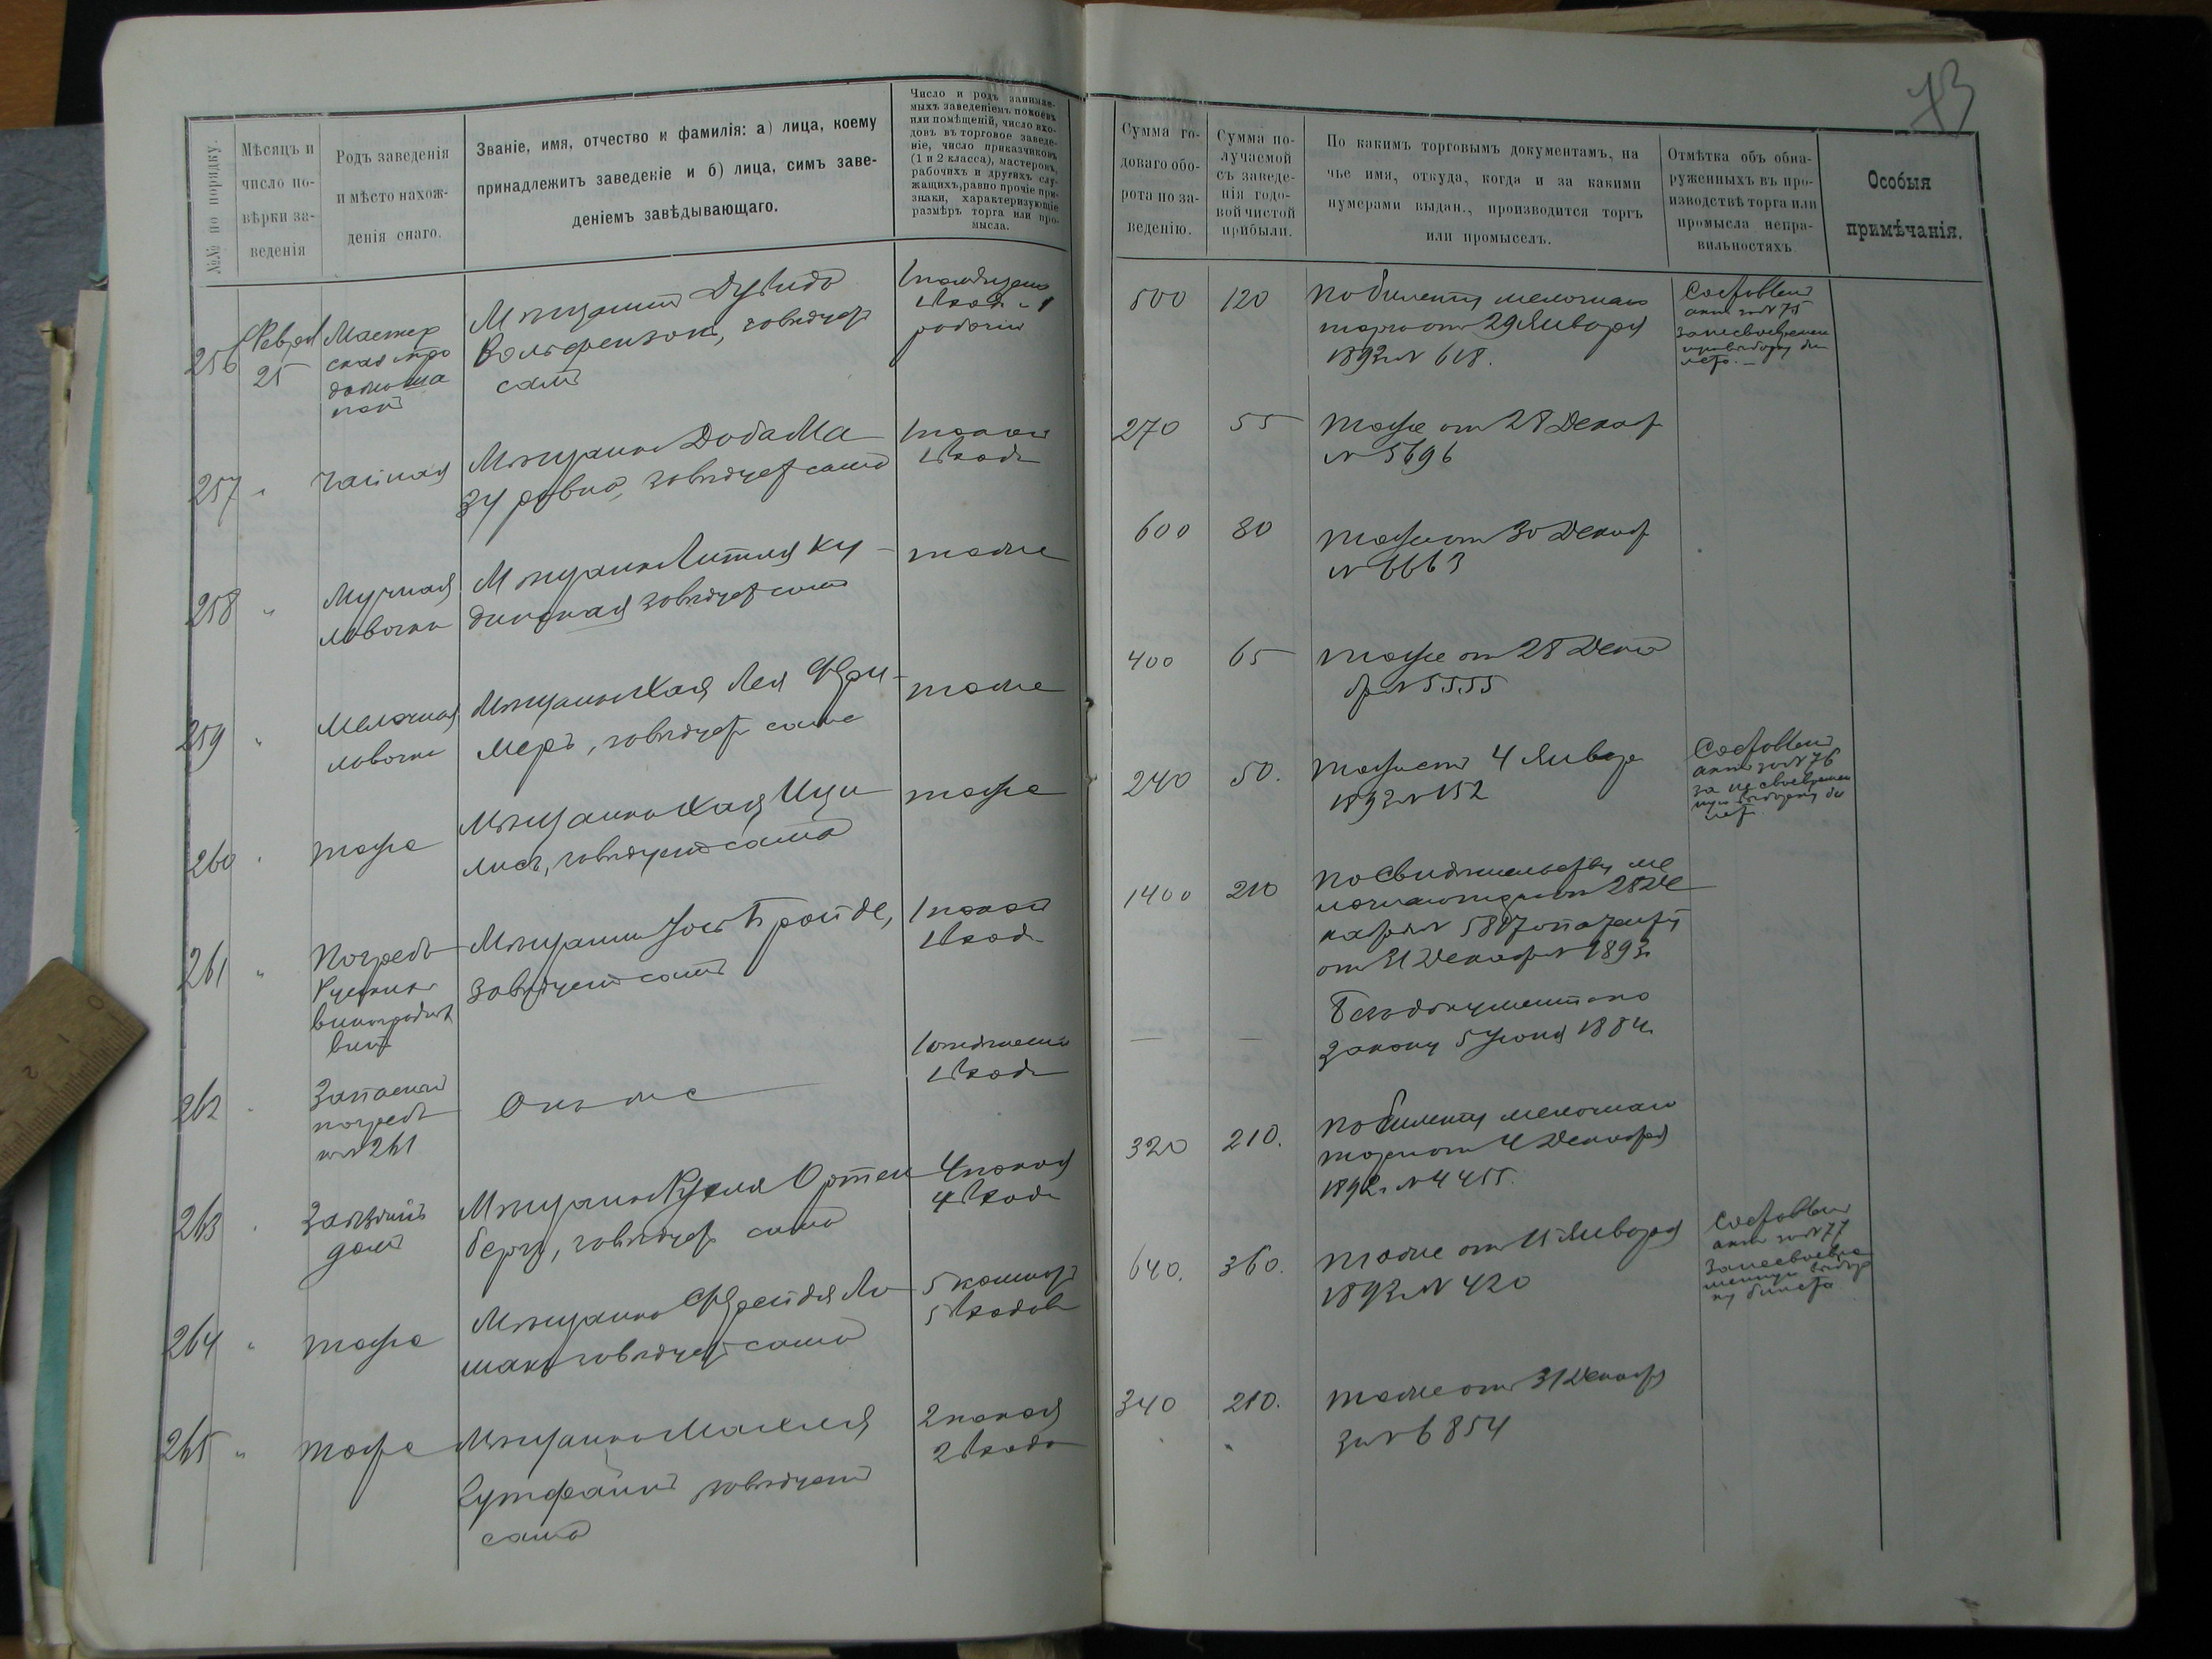 73
№№ по порядку.
Мѣсяцъ и
число по-
вѣрки за-
веденія
Родъ заведенія
и мѣсто нахож-
денія онаго.
Званіе, имя, отчество и фамилія: а) лица, коему
принадлежитъ заведеніе и б) лица, симъ заве-
деніемъ завѣдывающаго.
Число и родъ занимае-
мыхъ заведеніемъ покоевъ
или помѣщеній, число вхо-
довъ въ торговое заведе-
ніе, число приказчиковъ
(1 и 2 класса), мастеровъ,
рабочихъ и другихъ слу-
жащихъ, равно прочіе при-
знаки, характеризующіе
размѣръ торга или про-
мысла.
Сумма го-
доваго обо-
рота по за-
веденію.
Сумма по-
лучаемой
съ заведе-
нія годо-
вой чистой
прибыли.
По какимъ торговымъ документамъ, на
чье имя, откуда, когда и за какими
нумерами выдан., производится торгъ
или промыселъ.
Отмѣтка объ обна-
руженныхъ въ про-
изводствѣ торга или
промысла непра-
вильностяхъ
Особыя
примѣчанія.
256
Февраля
25
Мастер
ская
Мѣщанинъ Дувидъ
Вольфензонъ, завѣдует
самъ
1 помѣщение
1 входъ и 1
рабочий
500
120
По билету мелочнаго
торга от 29 Января
1893 г. № 618.
Составлен
актъ за № 75
за несвоевремен
ную выборку би
лета. —
257
"
Чайная
Мѣщанка Доба Ма
зуровна, завѣдует сама
1 покой
1 входъ
270
55
Тоже от 28 Декаб
№ 5696
258
"
Мучная
лавочка
Мѣщанка Гитля Ку
динская завѣдует сама
тоже
600
80
Тоже от 30 Декаб
№ 6663
259
"
Мелочная
лавочка
Мѣщанка Хая Лея Фри-
меръ, завѣдует сама
тоже
400
65
Тоже от 28 Дека
бр № 5555
260
"
тоже
Мѣщанка Хая Ици
лисъ, завѣдуетъ сама
тоже
240
50.
Тоже от 4 Января
1893 № 152
Составлен
актъ за № 76
за несвоевремен
ную выборку би
лет.
261
"
Погребъ
Русских
виноградных
вин
Мѣщанин Бройде,
завѣдуетъ самъ
1 покой
1 входъ
1400
210
По свидѣтельству ме
лочнаго торга от 28 Де
кабря № 5817 и патенту
от 31 Декабря № 1893
262
"
Запасной
погребъ
к № 261
Онъ же
1 помѣщение
1 входъ
—
—
Без документа по
Закону 5 Июня 1884 г.
263
"
Заѣзжий
домъ
Мѣщанка Ортен
бергъ, завѣдует сама
4 покоя
4 входа
320
210.
По билету мелочнаго
торга от 4 Декабря
1892 г. № 4455.
264
"
тоже
Мѣщанка Фрейдя Ли
шакъ завѣдует сама
5 комнат
5 входовъ
640.
360.
Тоже от 15 Января
1893 г. № 420
Составлен
актъ за № 77
за несвоевре
менную выбор
ку билета
265
"
тоже
Мѣщанка Малля
Гутфайнъ завѣдуетъ
сама
2 покоя
2 входа
340
210.
Тоже от 31 Декабря
за № 6854
0
2